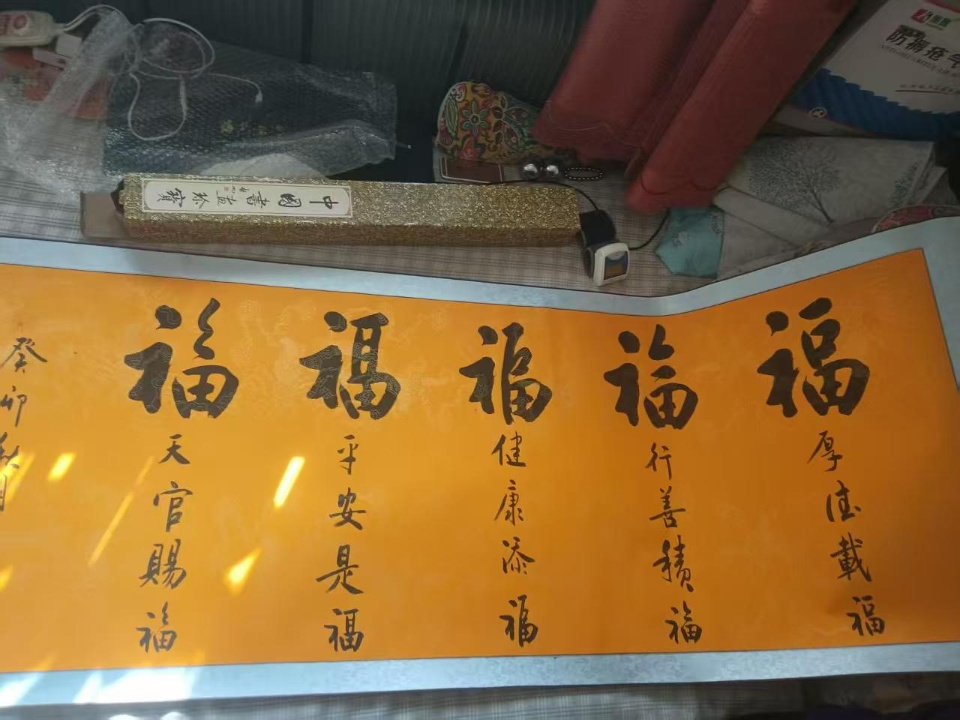 福
厚德載福
福
行善積福
福
健康添福
福
平安是福
福
天官賜福
癸卯秋月
中國書畫珍寶
防褥疮气